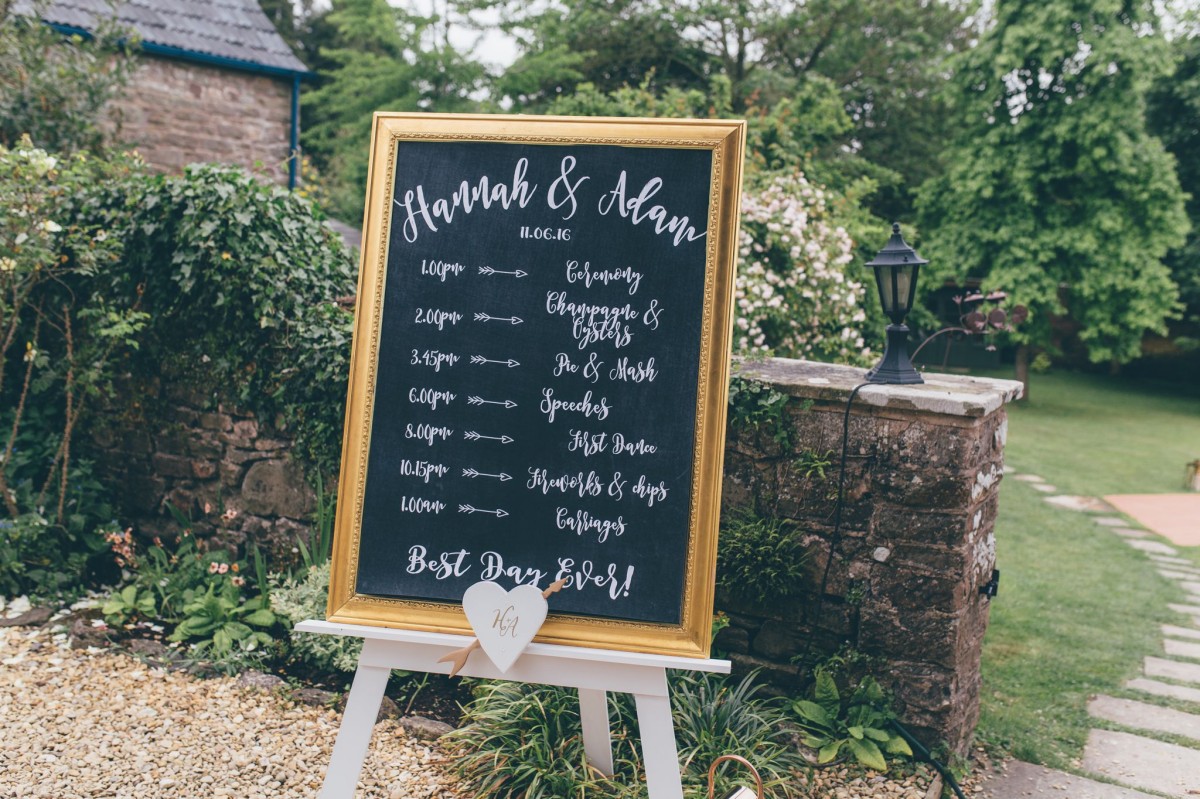 Hannah & Adam
11.06.16
1.00pm Ceremony
2.00pm Champagne &
Oysters
3.45pm Pie & Mash
6.00pm Speeches
8.00pm First Dance
10.15pm Fireworks & chips
1.00am Carriages
Best Day Ever!
H&A